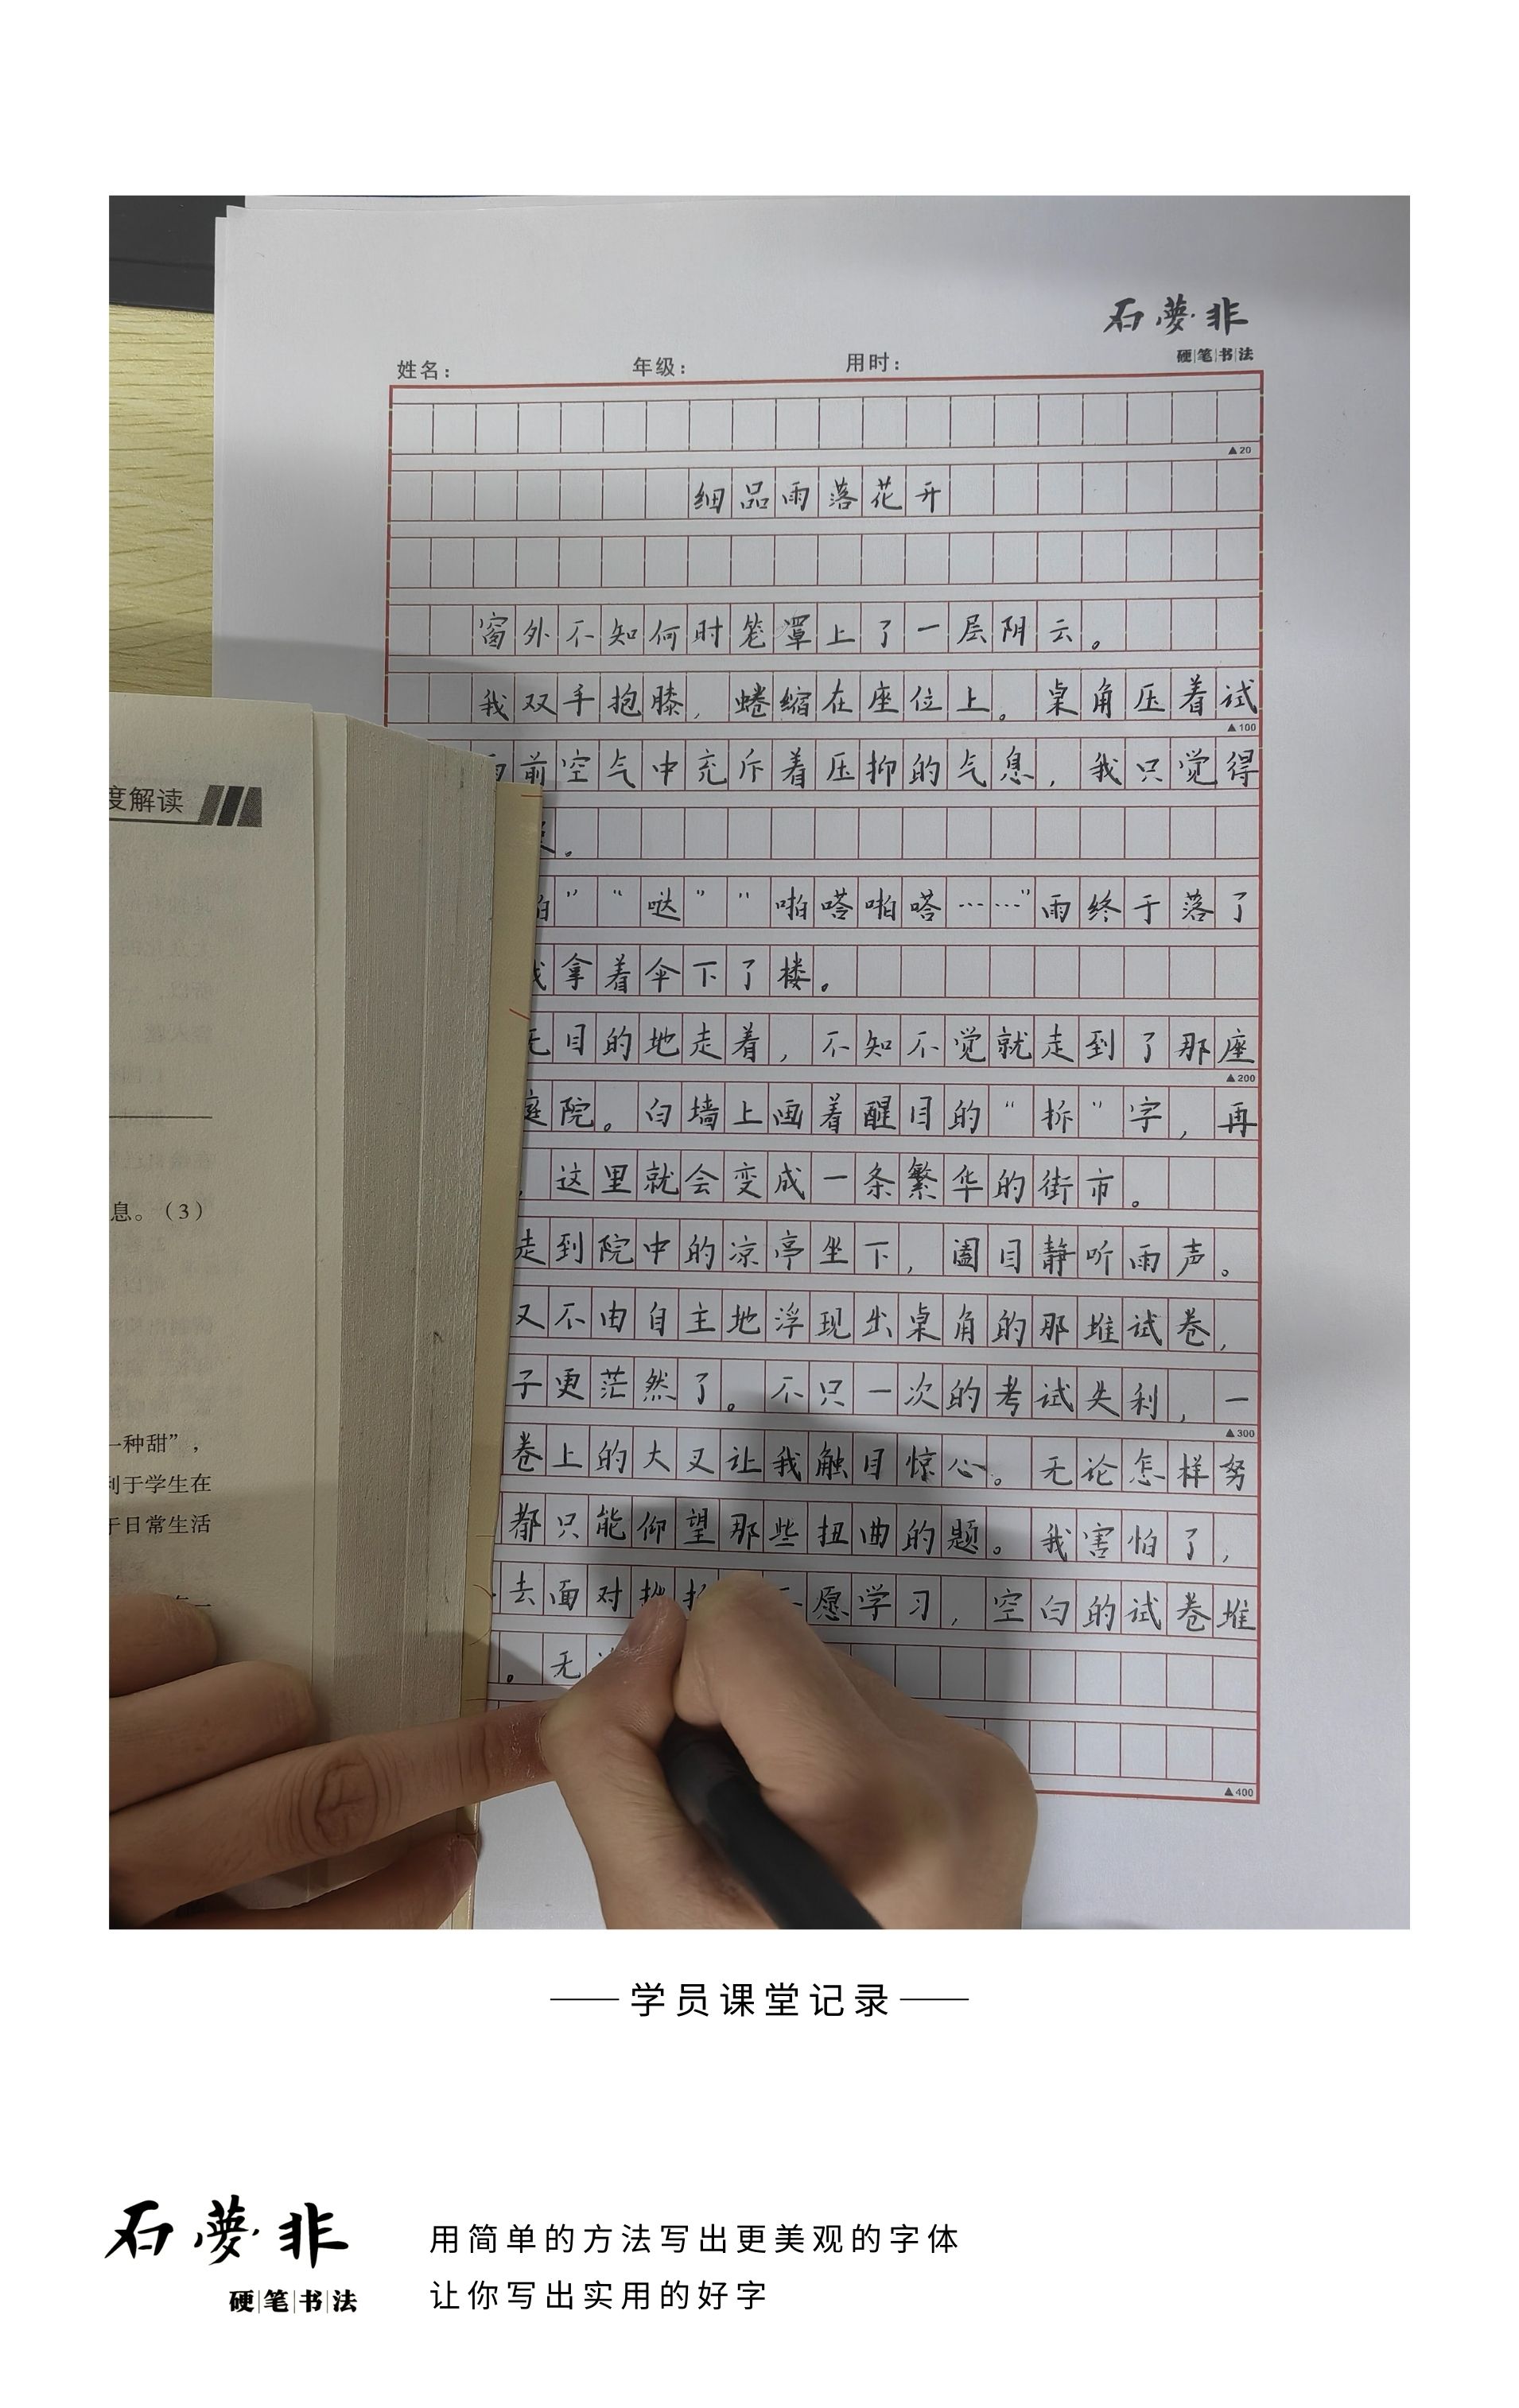 石夢非
硬笔书法
姓名： 年级： 用时：
▲20
细品雨落花开
窗外不知何时笼罩上了一层阴云。
我双手抱膝，蜷缩在座位上。桌角压着试
▲100
前空气中充斥着压抑的气息，我只觉得
。
”“哒”“啪嗒啪嗒……”雨终于落了
我拿着伞下了楼。
无目的地走着，不知不觉就走到了那座
▲200
庭院。白墙上画着醒目的“拆”字，再
，这里就会变成一条繁华的街市。
走到院中的凉亭坐下，阖目静听雨声。
又不由自主地浮现出桌角的那堆试卷，
子更茫然了。不只一次的考试失利，一
▲300
卷上的大叉让我触目惊心。无论怎样努
都只能仰望那些扭曲的题。我害怕了，
去面对 愿学习，空白的试卷堆
。无
▲400
度解读
息。（3）
一种甜”，
利于学生在
于日常生活
学员课堂记录
石夢非
硬笔书法
用简单的方法写出更美观的字体
让你写出实用的好字